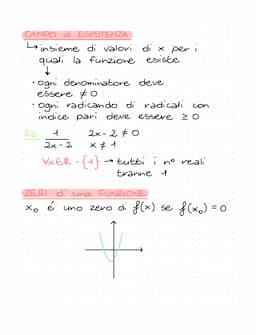 CAMPO di ESISTENZA
↳ insieme di valori di x per i
quali la funzione esiste
↓
· ogni denominatore deve
essere ≠ 0
· ogni radicando di radicali con
indice pari deve essere ≥ 0
ES. 1/(2x-2) 2x-2 ≠ 0
x ≠ 1
∀x∈R - {1} → tutti i n° reali
tranne 1
ZERI di una FUNZIONE
x₀ é uno zero di f(x) se f(x₀) = 0